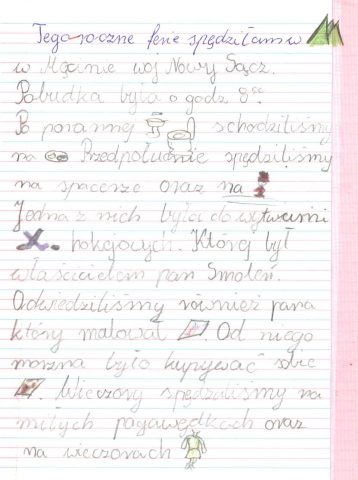 Tegoroczne ferie spędziłam w
w Męcinie woj Nowy Sącz.
Pobudka była o godz 8⁰⁰.
Po porannej schodziliśmy
na Przedpołudnie spędziliśmy
na spacerze oraz na
Jedna z nich była do wytwurni
hokejowych. Której był
właścicielem pan Smoleń.
Odwiedziliśmy również pana
który malował Od niego
można było kupywać sobie
Wieczory spędzaliśmy na
miłych pogawędkach oraz
na wieczorach